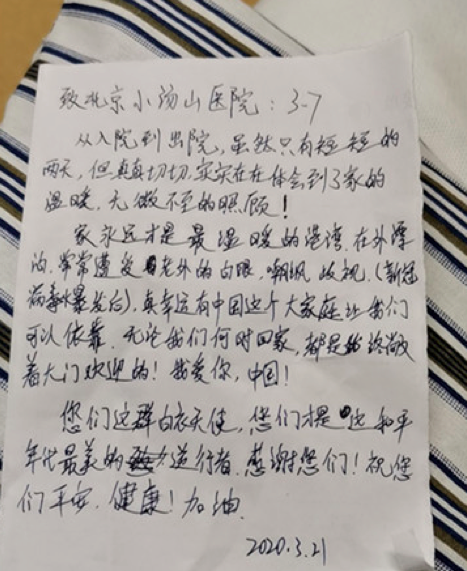 致北京小汤山医院：3-7
从入院到出院，虽然只有短短的
两天，但真真切切，实实在在体会到了家的
温暖，无微不至的照顾！
家永远才是最温暖的港湾，在外漂
泊，常常遭受老外的白眼，嘲讽，歧视，（新冠
病毒爆发后），真幸运有中国这个大家庭让我们
可以依靠，无论我们何时回家，都是敞
着大门欢迎的！我爱你，中国！
您们这群白衣天使，您们才是这和平
年代最美的逆行者，感谢您们！祝您
们平安，健康！加油
2020.3.21